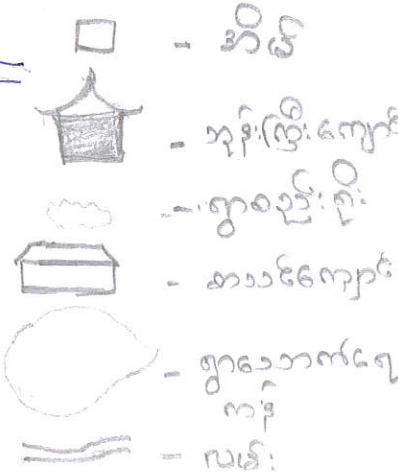 - အိမ်
- ဘုန်းကြီးကျောင်
- ရွာစည်းရိုး
- စာသင်ကျောင်
- ရွာသောက်ရေ
ကန်
- လမ်း